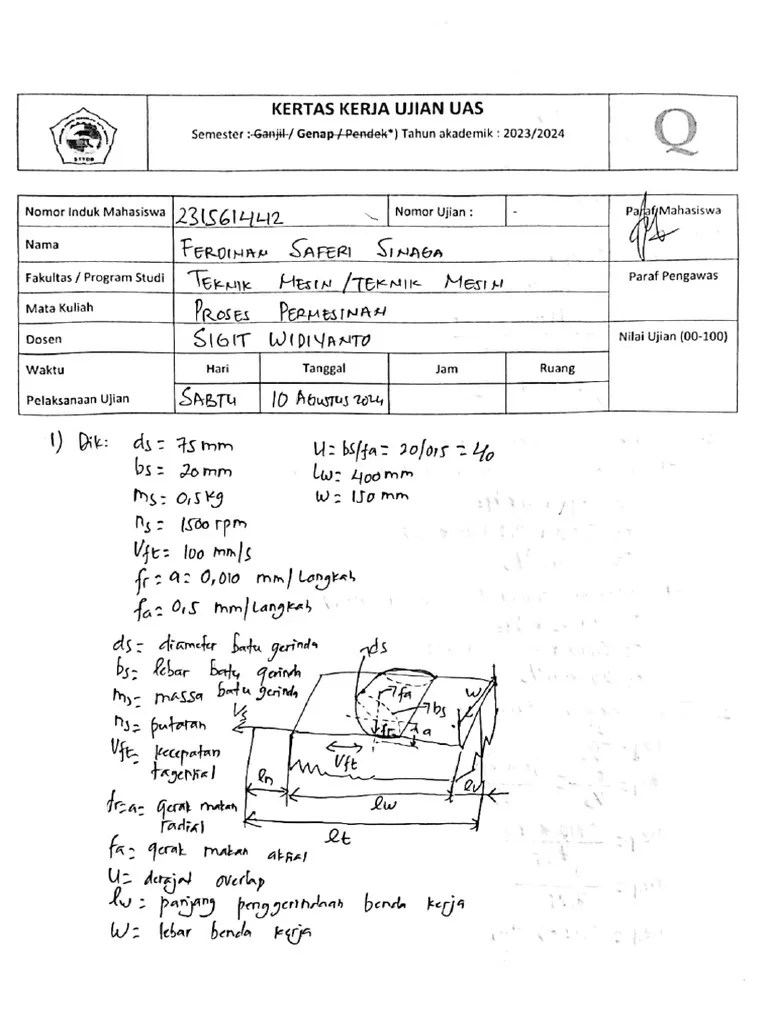 KERTAS KERJA UJIAN UAS
Semester : Ganjil / Genap / Pendek*) Tahun akademik : 2023/2024
Q
STTDB
Nomor Induk Mahasiswa 231561442 Nomor Ujian : - Paraf Mahasiswa
Nama FERDINAN SAFERI SINAGA
Fakultas / Program Studi TEKNIK MESIN / TEKNIK MESIN Paraf Pengawas
Mata Kuliah PROSES PERMESINAN
Dosen SIGIT WIDIYANTO Nilai Ujian (00-100)
Waktu Hari Tanggal Jam Ruang
Pelaksanaan Ujian SABTU 10 AGUSTUS 2024
1) Dik: ds = 75 mm U = bs/fa = 20/0,5 = 40
bs = 20 mm lw = 400 mm
ms = 0,5 kg w = 150 mm
ns = 1500 rpm
Vft = 100 mm/s
fr = a = 0,010 mm/Langkah
fa = 0,5 mm/Langkah
ds = diameter batu gerinda
bs = lebar batu gerinda
ms = massa batu gerinda
ns = putaran
Vft = kecepatan
tagensial
fr=a= gerak makan
radial
fa = gerak makan aksial
U = derajat overlap
lw = panjang penggerindaan benda kerja
W = lebar benda kerja
ds
fa
bs
w
Vs
fr
a
Vft
ln
lw
lv
lt